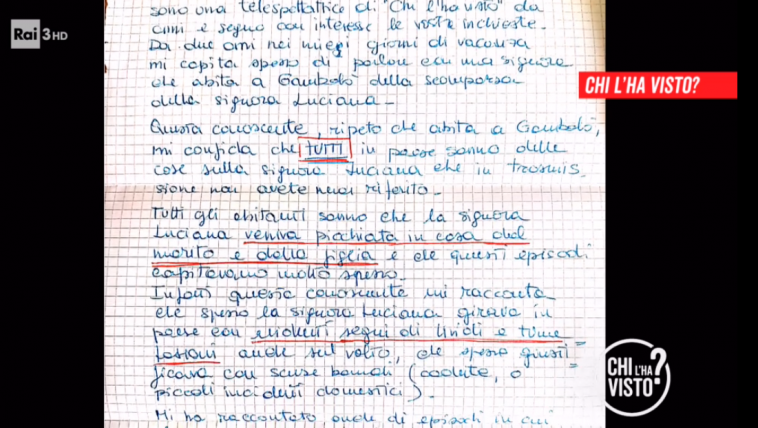 Rai 3HD
CHI L'HA VISTO?
sono una telespettatrice di "Chi l'ha visto" da
anni e seguo con interesse le vostre inchieste.
Da due anni nei miei giorni di vacanza
mi capita spesso di parlare con una signora
che abita a Gambolò della scomparsa
della signora Luciana.
Questa conoscente, ripeto che abita a Gambolò,
mi confida che TUTTI in paese sanno delle
cose sulla signora Luciana che in trasmis
sione non avete mai riferito.
Tutti gli abitanti sanno che la signora
Luciana veniva picchiata in casa dal
marito e dalla figlia e che questi episodi
capitavano molto spesso.
Infatti questa conoscente mi racconta
che spesso la signora Luciana girava in
paese con evidenti segni di lividi e tume
fazioni anche sul volto, che spesso giusti=
ficava con scuse banali (cadute, o
piccoli incidenti domestici).
Mi ha raccontato anche di episodi in cui
CHI L'HA
VISTO?